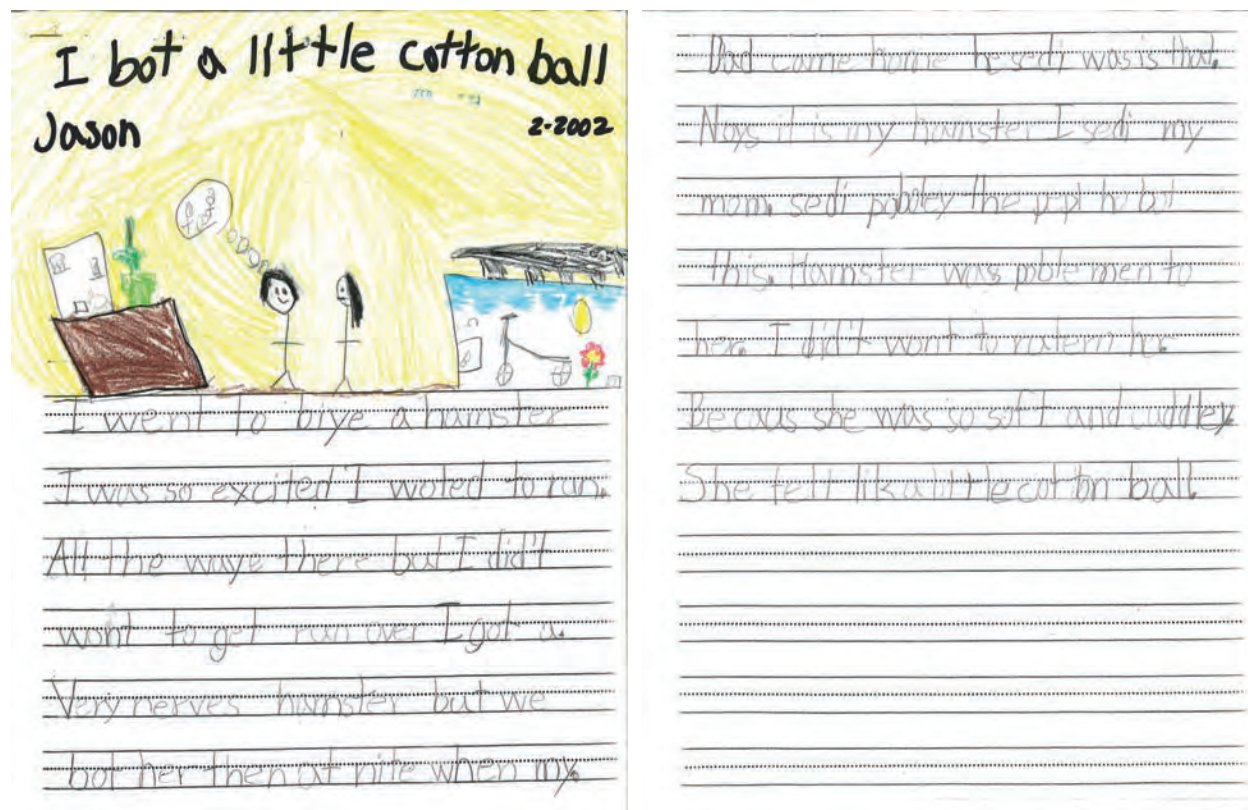 I bot a little cotton ball
Jason 2-2002
I went to biye a hamster
I was so excited I woted to run.
All the waye there but I did't
wont to get run over I got a.
Very nerves hamster but we
bot her then at nite when my.
Dad came home he sedi was is that.
Noys it is my hamster I sedi my
mom. sedi pobley the pepl ho bot
this. Hamster was poble men to
her. I did't wont to
Becaus she was so soft and cuddley.
She felt lik a little cotton ball.